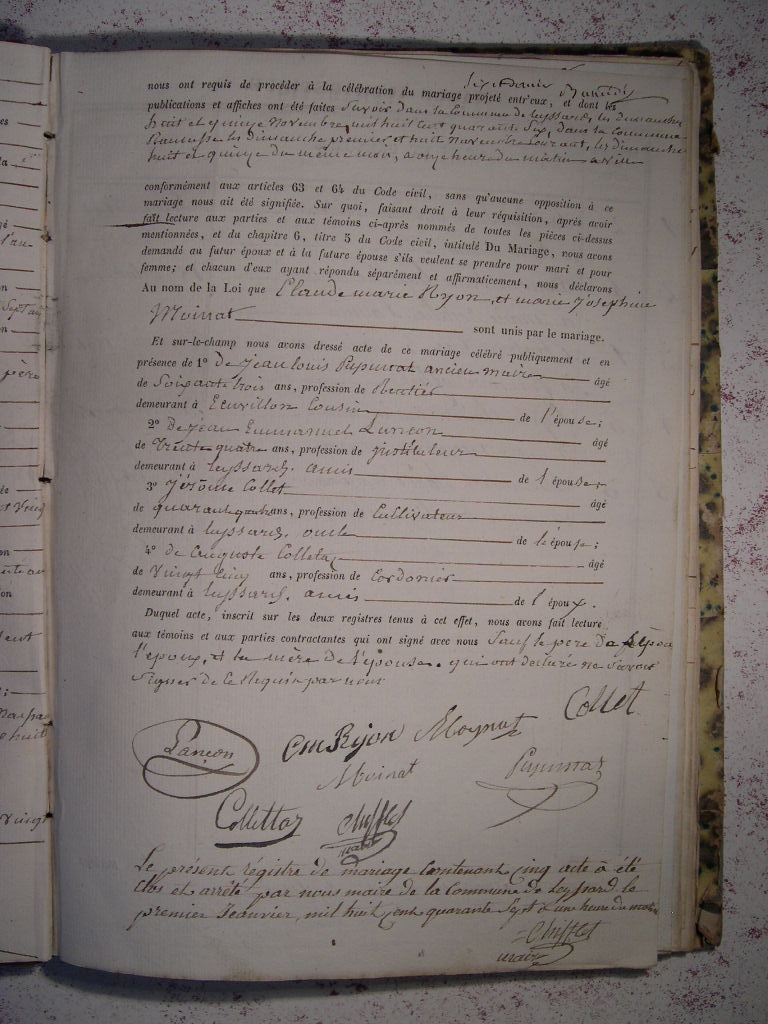 nous ont requis de procéder à la célébration du mariage projeté entr'eux, et dont les
publications et affiches ont été faites Savoir dans la Commune de Leyssard, les Dimanches
huit et quinze Novembre mil huit cent quarante Six, dans la Commune
les dimanche premier et huit Novembre courant, les dimanche
huit et quinze du même mois, à onze heure du matin
conformément aux articles 63 et 64 du Code civil, sans qu'aucune opposition à ce
mariage nous ait été signifiée. Sur quoi, faisant droit à leur réquisition, après avoir
fait lecture aux parties et aux témoins ci-après nommés de toutes les pièces ci-dessus
mentionnées, et du chapitre 6, titre 5 du Code civil, intitulé Du Mariage, nous avons
demandé au futur époux et à la future épouse s'ils veulent se prendre pour mari et pour
femme; et chacun d'eux ayant répondu séparément et affirmaticement, nous déclarons
Au nom de la Loi que Claude marie Ryon, et marie Josephine
Moinat sont unis par le mariage.
Et sur-le-champ nous avons dressé acte de ce mariage célébré publiquement et en
présence de 1° De Jean Louis ancien maire âgé
de Soixante trois ans, profession de Rentier
demeurant à Cousin de l'épouse;
2° De Jean Emmanuel Lançon âgé
de Trente quatre ans, profession de instituteur
demeurant à Leyssard, amis de l épouse;
3° Jérôme Collet âgé
de quarante ans, profession de Cultivateur
demeurant à Leyssard, oncle de l épouse;
4° de Auguste Colletaz âgé
de Vingt Cinq ans, profession de Cordonier
demeurant à Leyssard, amis de l époux.
Duquel acte, inscrit sur les deux registres tenus à cet effet, nous avons fait lecture
aux témoins et aux parties contractantes qui ont signé avec nous Sauf le pere De
l'epoux, et la mère de l'épouse. qui ont déclaré ne Savoir
Signer de Ce Requis par nous
Collet
Lançon CM Ryon Moynat
Moinat
Collettaz
Le présent régistre de mariage Contenant Cinq acte à été
Clos et arrêté par nous maire de la Commune de Leyssard le
premier Jeanvier, mil huit cent quarante Sept à une heure du matin
maire